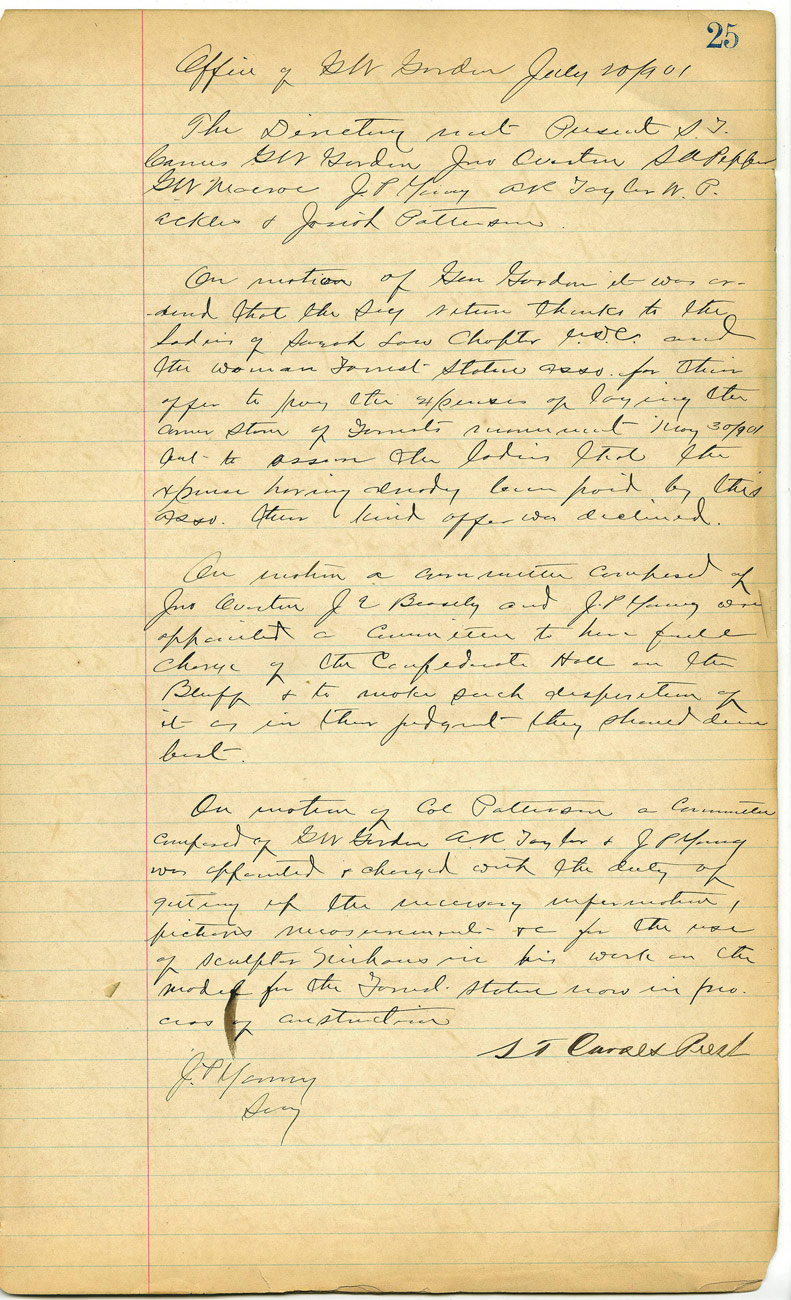 25
Office of GW Gordon July 20/901
The Directory met Present S. T.
Carnes GW Gordon Jno Overton S A Pepper
GW Macrae J. P Young AR Taylor W. P.
Ackles & Josiah Patterson.
On motion of Gen Gordon it was or-
-dered that the Secy return thanks to the
Ladies of Sarah Law Chapter U.D.C. and
the Woman Forrest Statue Asso. for their
offer to pay the expenses of laying the
corner stone of Forrests monument May 30/901
but to assure the ladies that the
expense having already been paid by this
Asso. their kind offer was declined.
On motion a committee composed of
Jno Overton J E Beasely and J. P Young were
appointed a Committee to have full
charge of the Confederate Hall on the
Bluff & to make such disposition of
it as in their judgmt they should deem
best.
On motion of Col Patterson a Committee
composed of GW Gordon A R Taylor & J P Young
was appointed & charged with the duty of
getting up the necessary information,
pictures measurements &c for the use
of sculptor Niehaus in his work on the
model for the Forrest statue now in pro-
cess of construction
S T Carnes Prest
J. P Young
Secy